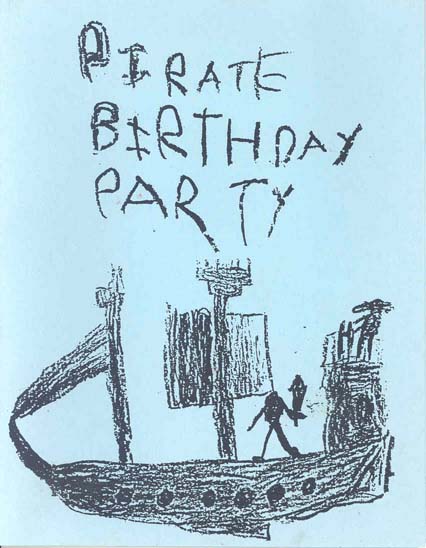 PIRATE
BIRTHDAY
PARTY